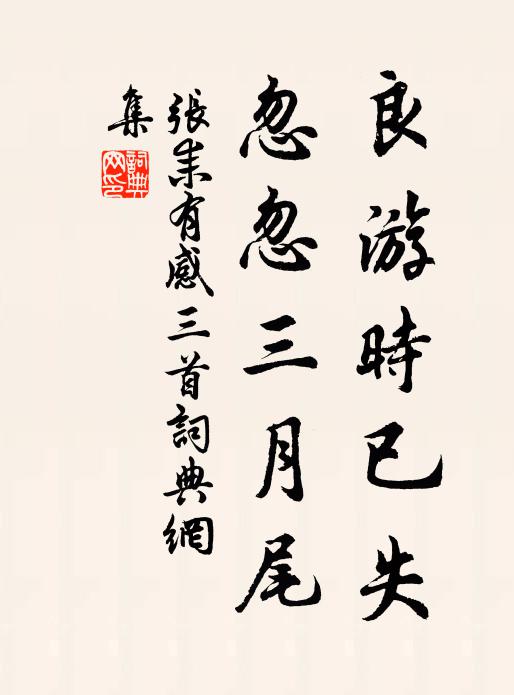 良游時已失
忽忽三月尾
張耒有感三首詞典網
集
詞典
网印